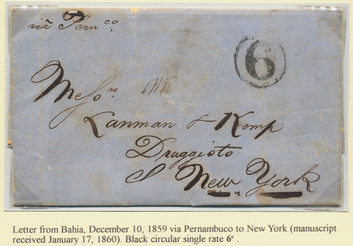 viâ Pernco.
6
Messrs
Lanman & Kemp
Druggists
New York
Letter from Bahia, December 10, 1859 via Pernambuco to New York (manuscript
received January 17, 1860). Black circular single rate 6d .